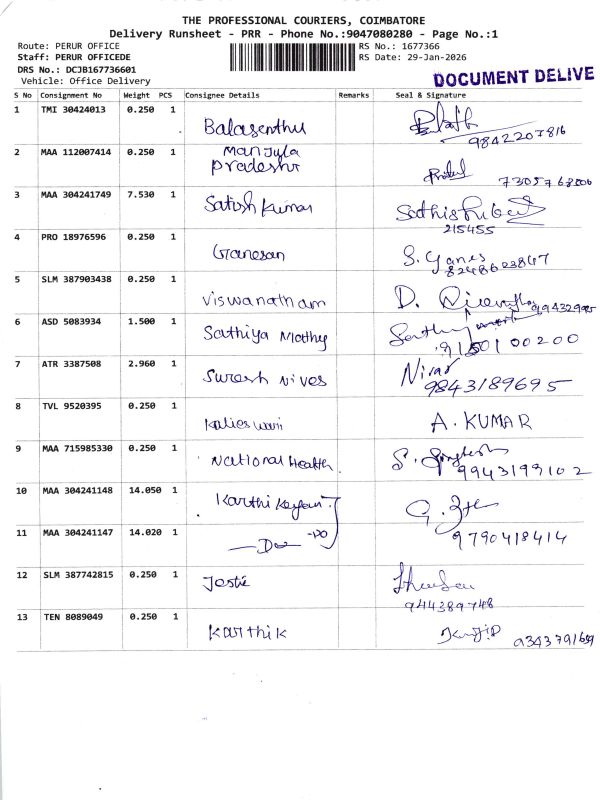 THE PROFESSIONAL COURIERS, COIMBATORE
Delivery Runsheet - PRR - Phone No.:9047080280 - Page No.:1
Route: PERUR OFFICE RS No.: 1677366
Staff: PERUR OFFICEDE RS Date: 29-Jan-2026
DRS No.: DCJB167736601
Vehicle: Office Delivery
DOCUMENT DELIVE
S No Consignment No Weight PCS Consignee Details Remarks Seal & Signature
1 TMI 30424013 0.250 1 Balasenthu
9842207816
2 MAA 112007414 0.250 1 Manjula
Pradesh
7305768806
3 MAA 304241749 7.530 1 Satish Kumar
215455
4 PRO 18976596 0.250 1 Ganesan S. Ganes
5 SLM 387903438 0.250 1 Viswanatham D.
6 ASD 5083934 1.500 1 Sathiya Mothy
9150100200
7 ATR 3387508 2.960 1 Suresh Nives Nivas
9843189695
8 TVL 9520395 0.250 1 A. KUMAR
9 MAA 715985330 0.250 1 National Health S.
9943199102
10 MAA 304241148 14.050 1 Karthikeyan G.
11 MAA 304241147 14.020 1 -Do-
9790418414
12 SLM 387742815 0.250 1
944389748
13 TEN 8089049 0.250 1 Karthik